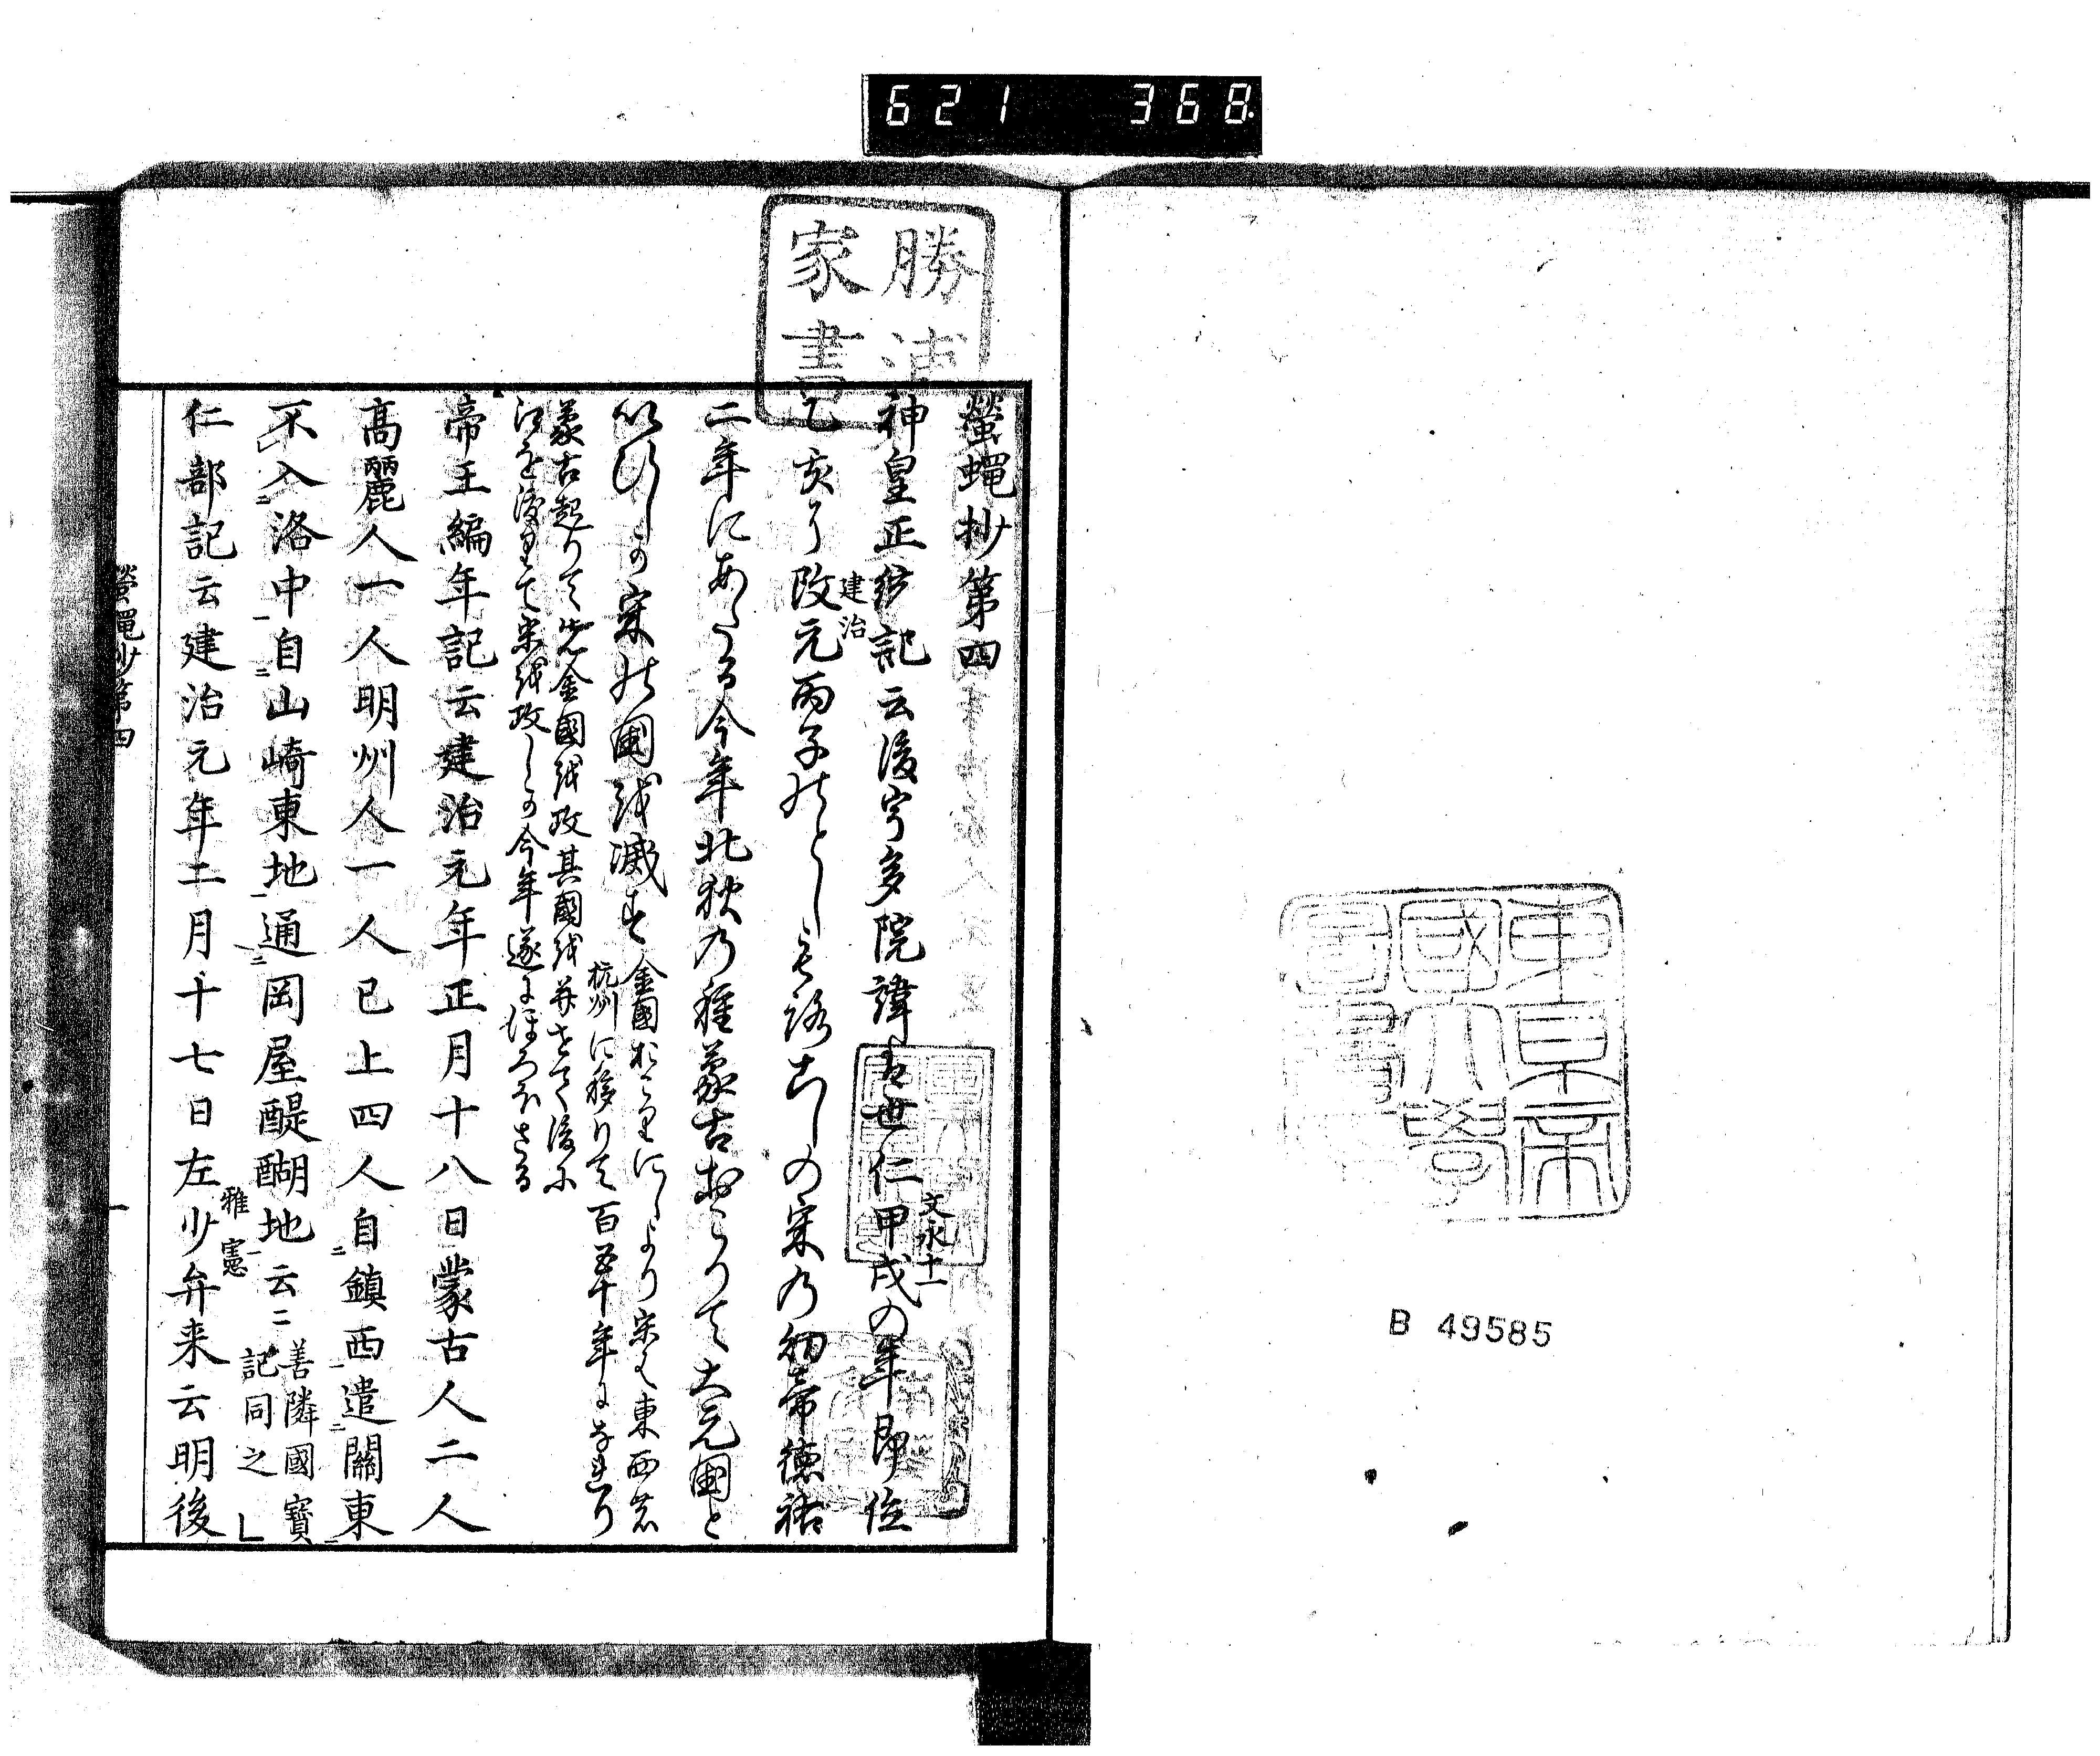 621 368
勝浦
家書
東京帝
國大學
圖書
B 49585
螢蠅抄第四
神皇正統記云後宇多院諱は世仁甲戌の年即位
文永十一
乙亥に改元丙子のとしもろこしの宋の幼帝徳祐
建治
二年にあたる今年北狄の種蒙古おこりて大元國と
いひしか宋の國を滅す
金國おこりにしより宋は東西の
杭州に移りて百五十年になれり
蒙古起りて先金國を攻其國を并せて後に
江を渡りて宋を攻しか今年遂にほろほさる
帝王編年記云建治元年正月十八日蒙古人二人
高麗人一人明州人一人已上四人自鎮西遣關東
不入洛中自山崎東地通岡屋醍醐地云々
善隣國寶
記同之
仁部記云建治元年二月十七日左少弁来云明後
雅憲
螢蠅抄第四
一